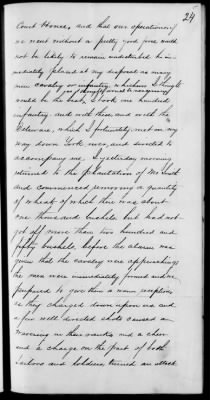 24
Court House, and that our operations
as went without a pretty good force would
not be likely to remain undisturbed he im-
mediately placed at my disposal as many
men cavalry or infantry, which ever I thought
would be the best, I took one hundred
infantry and with these and with the
Delaware, which I fortunately met on my
way down York river, and directed to
accompany me, I yesterday morning
returned to the plantation of Mr Smith
and commenced removing a quantity
of wheat of which there was about
one thousand bushels but had not
got off more than two hundred and
fifty bushels, before the alarm was
given that the cavalry were approaching
the men were immediately formed and
prepared to give them a warm reception
as they charged down upon us and
a few well directed shots caused a
wavering in their ranks and a cheer
and a charge on the part of both
sailors and soldiers turned an attack